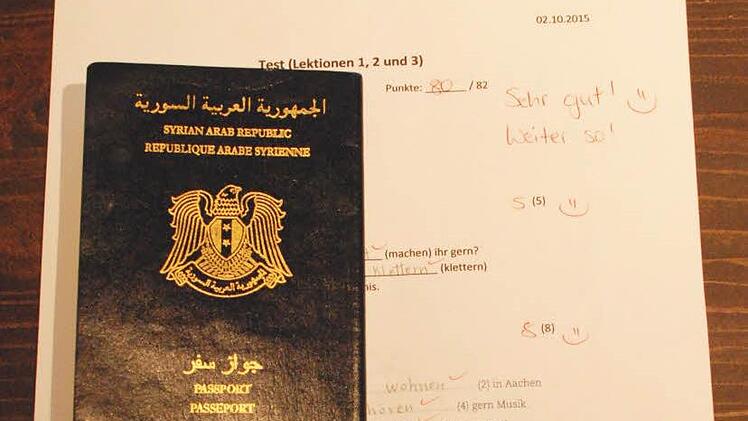 02.10.2015
Test (Lektionen 1, 2 und 3)
Punkte: 80 / 82
Sehr gut!
Weiter so!
5 (5)
(machen) ihr gern?
klettern (klettern)
nis.
8 (8)
wohnen (2) in Aachen
hören (4) gern Musik
الجمهورية العربية السورية
SYRIAN ARAB REPUBLIC
REPUBLIQUE ARABE SYRIENNE
الجمهورية العربية السورية
جواز سفر
PASSPORT
PASSEPORT